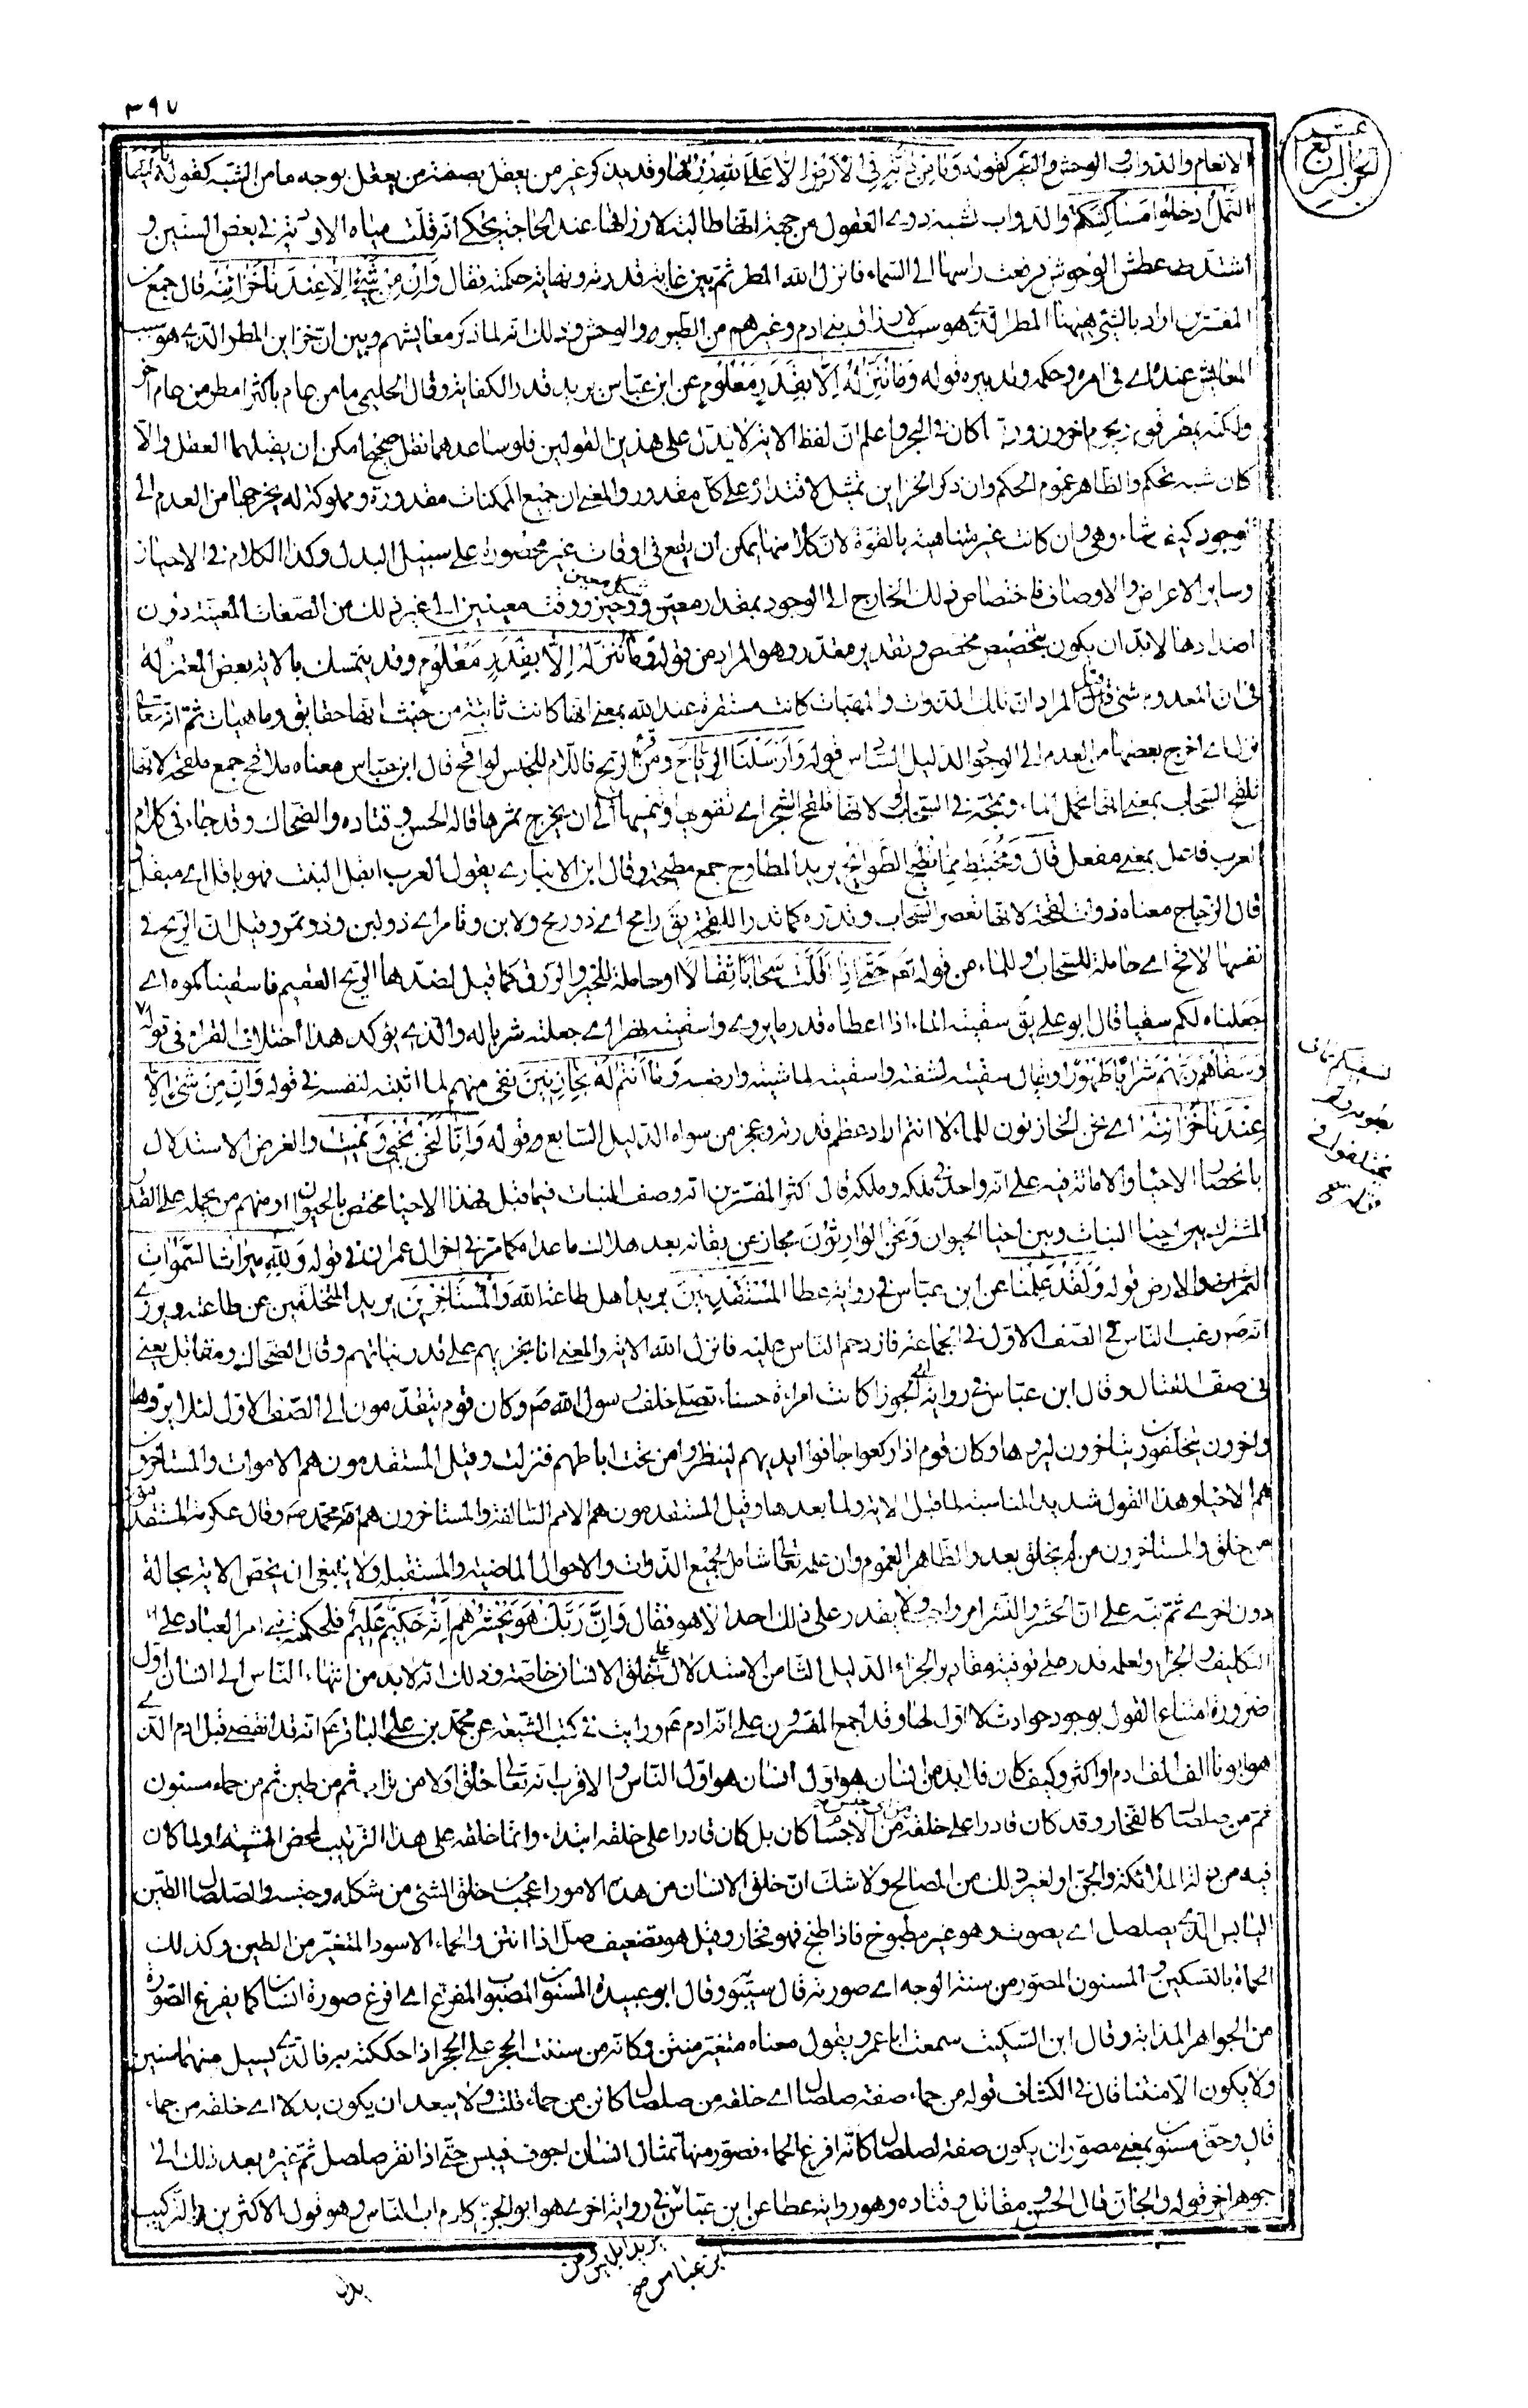 ٣٩٧
الانعام والدواب والوحش والطير كقوله وما من دابة في الارض الا على الله رزقها وقد يذكر غير من يعقل بصفة من يعقل بوجه ما من الشبه كقوله يا ايها
النمل ادخلوا مساكنكم والدواب تشبه ذوى العقول من جهة انها طالبة لارزاقها عند الحاجة يحكى انه قلت مياه الاودية في بعض السنين و
اشتد عطش الوحوش فرفعت راسها الى السماء فانزل الله المطر ثم بين غاية قدرته ونهاية حكمته فقال وان من شئ الا عندنا خزائنه قال جمع من
المفسرين اراد بالشئ ههنا المطر الذى هو سبب لارزاق بنى ادم وغيرهم من الطيور والوحش وذلك انه لما ذكر معايشهم وبين ان خزاين المطر الذى هو سبب
المعايش عنده اى في امره وحكمه وتدبيره قوله وما ننزله الا بقدر معلوم عن ابن عباس يريد قدر الكفاية وقال الحكم ما من عام باكثر مطر من عام اخر
ولكنه يمطر قوم ويحرم اخرون وربما كان في البحر واعلم ان لفظ الاية لا يدل على هذين القولين فلو ساعدهما نقل صحيح امكن ان يقبلهما العقل والا
كان شبه تحكم والظاهر عموم الحكم وان ذكر الخزاين تمثيل لاقتداره على كل مقدور والمعنى ان جميع الممكنات مقدورة ومملوكة له يخرجها من العدم الى
الوجود كيف شاء وهى وان كانت غير متناهية بالقوة لان كلا منها يمكن ان يقع في اوقات غير محصورة على سبيل البدل وكذا الكلام في الاحياز
وساير الاعراض والاوصاف فاختصاص ذلك الخارج الى الوجود بمقدار معين وشكل معين وحيز ووقت معينين الى غير ذلك من الصفات المعينة دون
اضدادها لا بد ان يكون بتخصيص مخصص وتقدير مقدر وهو المراد من قوله وما ننزله الا بقدر معلوم وقد يتمسك بالاية بعض المعتزلة
في ان المعدوم شئ قيل المراد ان تلك الذوات والماهيات كانت مستقرة عند الله بمعنى انها كانت ثابتة من حيث انها حقايق وماهيات ثم انه تعالى
نزل اى اخرج بعضها من العدم الى الوجود الدليل السادس قوله وارسلنا الرياح ومن قرأ الريح فاللام للجنس لواقح قال ابن عباس معناه ملاقح جمع ملقحة لانها
تلقح السحاب بمعنى انها تحمل الماء وتمجه في السحاب او لانها تلقح الشجر اى تقويها وتنميها الى ان يخرج ثمرها قاله الحسن وقتاده والضحاك وقد جاء في كلام
العرب فاعل بمعنى مفعل قال ومختبط مما تطيح الطوائح يريد المطاوح جمع مطيحة وقال ابن الانبارى يقول العرب ابقل النبت فهو باقل اى مبقل
قال الزجاج معناه ذوات لقحة لانها تعصر السحاب وتدره كما تدر اللقحة يق رامح اى ذو رمح ولابن وتامر اى ذو لبن وذو تمر وقيل ان الريح في
نفسها لاقح اى حاملة للسحاب او للماء من قوله تعم حتى اذا اقلت سحابا ثقالا او حاملة للخير والرزق كما قيل لضدها الريح العقيم فاسقيناكموه اى
جعلناه لكم سقيا قال ابو على يق سقيته الماء اذا اعطاه قدر ما يروى واسقيته نهرا اى جعلته شربا له والذى يؤكد هذا اختلاف القراء في قوله
وسقاهم ربهم شرابا طهورا ويقال سقيته لشفته واسقيته لماشيته وارضه وما انتم له بخازنين نفى منهم لما اثبته لنفسه في قوله وان من شئ الا
عندنا خزائنه اى نحن الخازنون للماء لا انتم اراد عظم قدرته وعجز من سواه الدليل السابع قوله وانا لنحن نحيى ونميت والغرض الاستدلال
بانحصار الاحياء والاماتة فيه على انه واحد في ملكه وملكه قال اكثر المفسرين انه وصف النبات فيما قبل فهذا الاحياء مختص بالحيوان ومنهم من يحمله على القدر
المشترك بين احياء النبات وبين احياء الحيوان ونحن الوارثون مجاز عن بقائه بعد هلاك ما عداه كما مر في اخر ال عمران في قوله ولله ميراث السموات
والارض قوله ولقد علمنا عن ابن عباس في رواية عطا المستقدمين يريد اهل طاعة الله والمستاخرين يريد المتخلفين عن طاعته ويروى
انه صم رغب الناس في الصف الاول في الجماعة فازدحم الناس عليه فانزل الله الاية والمعنى انا نجزيهم على قدر نياتهم وقال الضحاك ومقاتل يعنى
في صف القتال وقال ابن عباس في رواية ابى الجوزا كانت امراة حسناء تصلى خلف رسول الله صم وكان قوم يتقدمون الى الصف الاول لئلا يروها
واخرون يتخلفون ويتاخرون ليروها وكان قوم اذا ركعوا جافوا ايديهم لينظروا من تحت اباطهم فنزلت وقيل المستقدمون هم الاموات والمستاخرون
هم الاحياء وهذا القول شديد المناسبة لما قبل الاية ولما بعدها وقيل المستقدمون هم الامم السالفة والمستاخرون هم امة محمد صم وقال عكرمة المستقدمون
من خلق والمستاخرون من لم يخلق بعد والظاهر العموم وان علمه تعالى شامل لجميع الذوات والاحوال الماضية والمستقبله ولا ينبغى ان يخص الاية بحالة
دون اخرى ثم نبه على ان الحشر والنشر امر واجب ولا يقدر على ذلك احد الا هو فقال وان ربك هو يحشرهم انه حكيم عليم فلحكمته بنى امر العباد على
التكليف والجزاء ولعلمه قدر على توفية مقادير الجزاء الدليل الثامن الاستدلال على خلق الانسان خاصة وذلك انه لا بد من انتهاء الناس الى انسان اول
ضرورة امتناع القول بوجود حوادث لا اول لها وقد اجمع المفسرون على انه ادم عم ورايت في كتب الشيعه عن محمد بن على الباقر عم انه قد انقضى قبل ادم الذى
هو ابونا الف الف ادم او اكثر وكيف كان فلا بد من انسان هو اول انسان هو اول الناس والاقرب انه تعالى خلق اولا من تراب ثم من طين ثم من حماء مسنون
ثم من صلصال كالفخار وقد كان قادرا على خلقه من اى جنس من الاجسام كان بل كان قادرا على خلقه ابتداء وانما خلقه على هذا الترتيب لمحض المشية او لما كان
فيه من دلالة الملائكة والجن او لغير ذلك من المصالح ولا شك ان خلق الانسان من هذه الامور اعجب من خلق الشئ من شكله وجنسه والصلصال الطين
اليابس الذى يصلصل اى يصوت وهو غير مطبوخ فاذا طبخ فهو فخار وقيل هو تضعيف صل اذا انتن والحماء الاسود المتغير من الطين وكذلك
الحماة بالتسكين والمسنون المصور من سنة الوجه اى صورته قال سيبويه وقال ابو عبيدة المسنون المصبوب المفرغ اى افرغ صورة انسان كما يفرغ الصورة
من الجواهر المذابة وقال ابن السكيت سمعت ابا عمرو يقول معناه متغير منتن وكانه من سننت الحجر على الحجر اذا حككته به فالذى يسيل منهما سنين
ولا يكون الا منتنا قال في الكشاف قوله من حماء صفة صلصال اى خلقه من صلصال كائن من حماء قلت ولا يبعد ان يكون بدلا اى خلقه من حماء
قال وحق مسنون بمعنى مصور ان يكون صفة لصلصال كانه افرغ الحماء فصور منها تمثال انسان اجوف فيبس حتى اذا نقر صلصل ثم غيره بعد ذلك الى
جوهر اخر قوله والجان قال الحسن ومقاتل وقتاده وهو رواية عطا عن ابن عباس في رواية اخرى هو ابو الجن كادم اب الناس وهو قول الاكثرين والتركيب
يريد ابليس وعن
ابن عباس
يدل